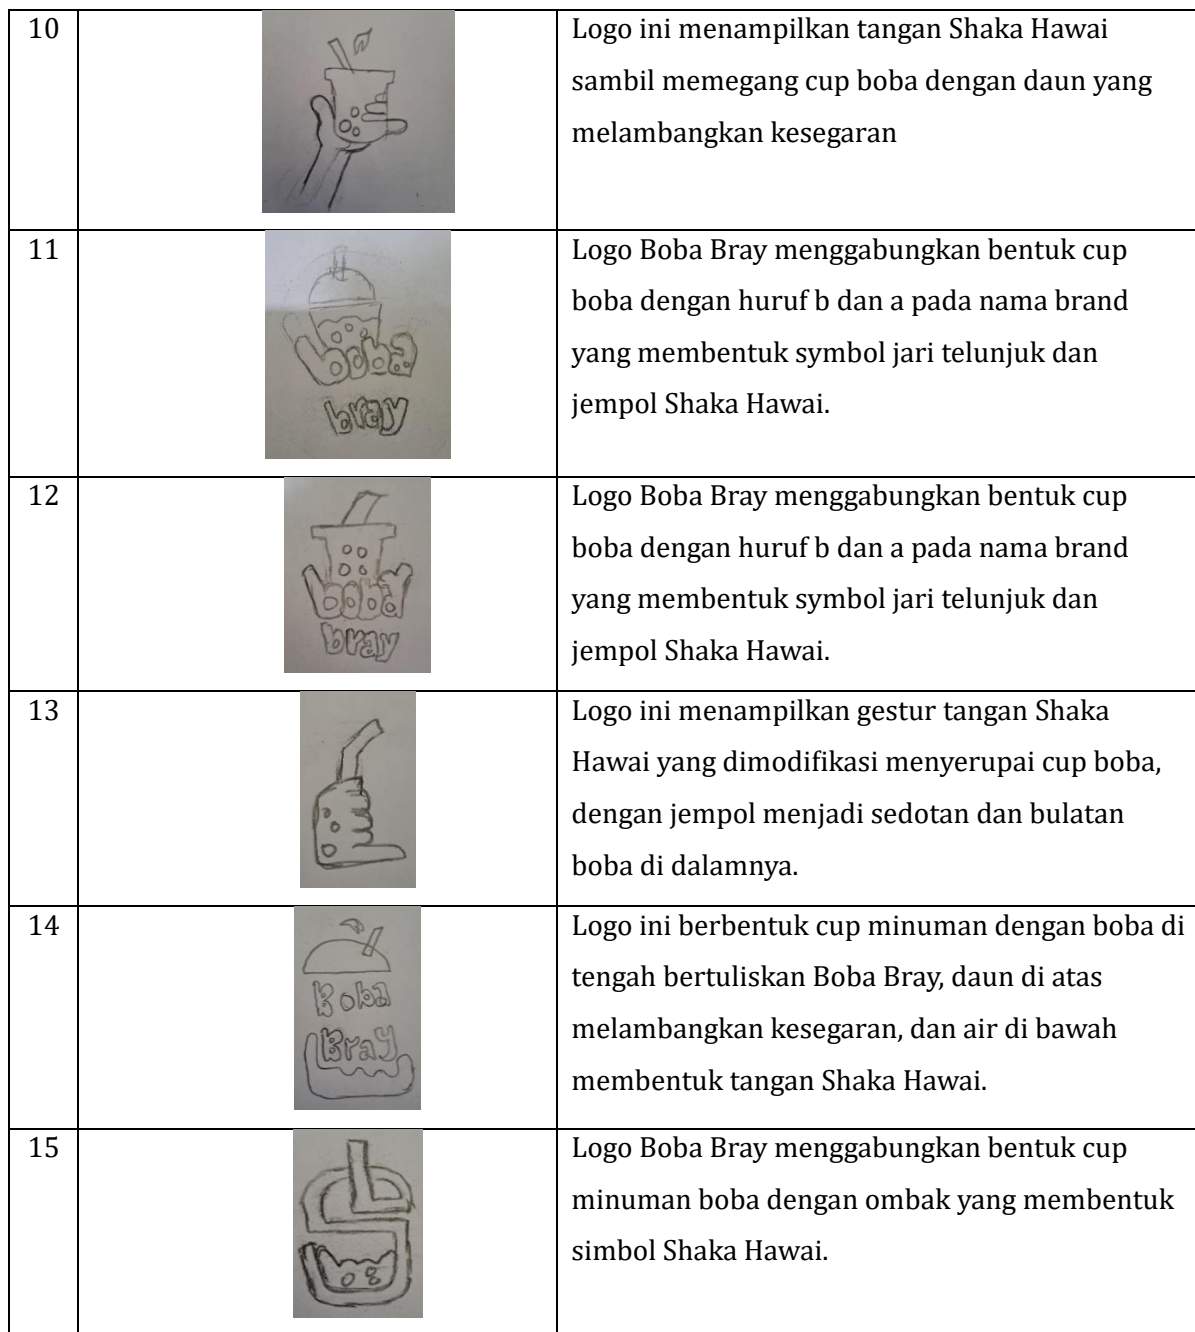 10
Logo ini menampilkan tangan Shaka Hawai
sambil memegang cup boba dengan daun yang
melambangkan kesegaran
11
boba
bray
Logo Boba Bray menggabungkan bentuk cup
boba dengan huruf b dan a pada nama brand
yang membentuk symbol jari telunjuk dan
jempol Shaka Hawai.
12
boba
bray
Logo Boba Bray menggabungkan bentuk cup
boba dengan huruf b dan a pada nama brand
yang membentuk symbol jari telunjuk dan
jempol Shaka Hawai.
13
Logo ini menampilkan gestur tangan Shaka
Hawai yang dimodifikasi menyerupai cup boba,
dengan jempol menjadi sedotan dan bulatan
boba di dalamnya.
14
Boba
Bray
Logo ini berbentuk cup minuman dengan boba di
tengah bertuliskan Boba Bray, daun di atas
melambangkan kesegaran, dan air di bawah
membentuk tangan Shaka Hawai.
15
Logo Boba Bray menggabungkan bentuk cup
minuman boba dengan ombak yang membentuk
simbol Shaka Hawai.